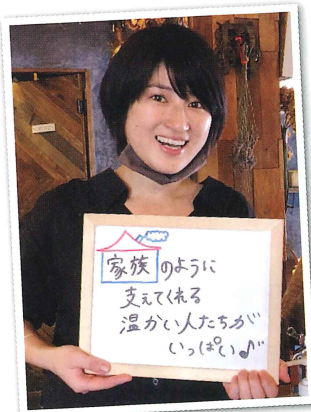 家族のように
支えてくれる
温かい人たちが
いっぱい♪